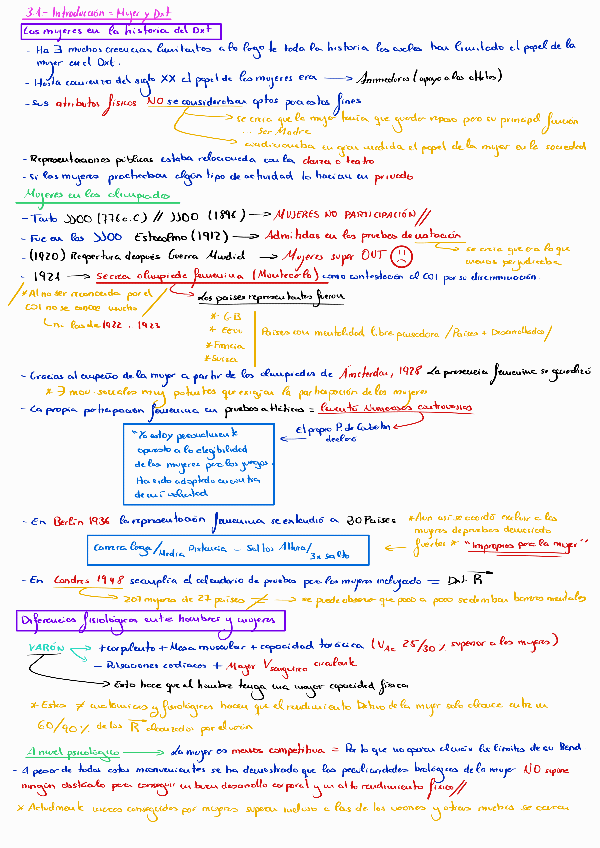 3.1 - Introducción = Mujer y Dxt
Las mujeres en la historia del Dxt
- Ha ∃ muchas creencias limitantes a lo largo de toda la historia las cuales han limitado el papel de la
mujer en el Dxt.
- Hasta comienzo del siglo XX el papel de las mujeres era → Animadoras (apoyo a los atletas)
- Sus atributos físicos NO se consideraban aptos para estos fines
→ se creía que la mujer tenía que guardar reposo pero su principal función
... Ser Madre
→ condicionaban en gran medida el papel de la mujer en la sociedad
- Representaciones públicas estaba relacionada con la danza o teatro
- Si las mujeres practicaban algún tipo de actividad lo hacían en privado
Mujeres en las olimpiadas
- Tanto JJOO (776 a.C) // JJOO (1896) → MUJERES NO PARTICIPACIÓN //
- Fue en los JJOO Estocolmo (1912) → Admitidas en las pruebas de natación
→ se creía que era la que
menos perjudicaba
- (1920) Reapertura después Guerra Mundial → Mujeres super OUT
- 1921 → se crea olimpiada femenina (Montecarlo) como contestación al COI por su discriminación.
* Al no ser reconocida por el
COI no se conoce mucho
↳ ni las de 1922 . 1923
→ Los países representantes fueron
* GB
* EEUU
* Francia
* Suiza
Países con mentalidad libre pensadora / Países + Desarrollados /
- Gracias al empeño de la mujer a partir de las olimpiadas de Ámsterdam, 1928 la presencia femenina se
* ∃ mov. sociales muy potentes que exigían la participación de las mujeres
- La propia participación femenina en pruebas atléticas = levantó numerosas controversias
El propio P. de Cubertin
declara
"Yo estoy personalmente
opuesto a la elegibilidad
de las mujeres para los juegos.
Ha sido adoptada en contra
de mi voluntad
- En Berlín 1936 la representación femenina se extendió a 30 Países
* Aun así se acordó excluir a las
mujeres de pruebas demasiado
fuertes * "Impropias para la mujer"
Carrera larga / Media Distancia - Saltos Altura / 3x salto
- En Londres 1948 se amplía el calendario de pruebas para las mujeres incluyendo = Dxt. R
→ 207 mujeres de 27 países ≠ → se puede observar que poco a poco se derriban barreras mentales
Diferencias fisiológicas entre hombres y mujeres
VARÓN → + corpulento + Masa muscular + capacidad torácica (VAc 25/30% superior a las mujeres)
→ - Pulsaciones cardiacas + Mayor V sanguíneo circulante
→ Esto hace que el hombre tenga una mayor capacidad física
* Estas ≠ anatómicas y fisiológicas hacen que el rendimiento Dxtivo de la mujer solo alcance entre un
60/90% de los R alcanzados por el varón
A nivel psicológico → La mujer es menos competitiva = Por lo que no quieren alcanzar los límites de su Rend
- A pesar de todos estos inconvenientes se ha demostrado que las peculiaridades biológicas de la mujer NO supone
ningún obstáculo para conseguir un buen desarrollo corporal y un alto rendimiento físico //
* Actualmente marcas conseguidas por mujeres superan incluso a las de los varones y otras muchas se acercan